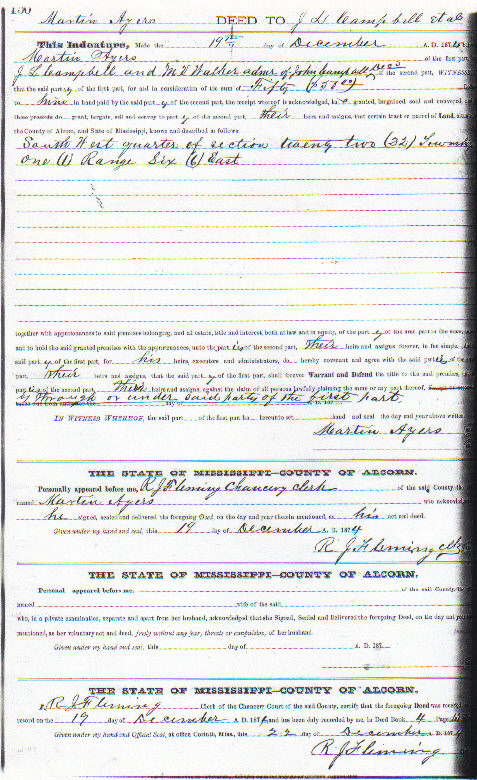 150
Martin Ayers DEED TO J L Campbell et al
This Indenture, Made the 19th day of December A. D. 1874
Martin Ayers of the first part
J L Campbell and M V Walker admrs of John Campbell decd of the second part, WITNESS
that the said part y of the first part, for and in consideration of the sum of Fifty ($50
to him in hand paid by the said part y of the second part, the receipt whereof is acknowledged, ha granted, bargained sold and conveyed, and
these presents do grant, bargain, sell and convey to part y of the second part, their heirs and assigns, that certain tract or parcel of Land
the County of Alcorn, and State of Mississippi, known and described as follows:
South West quarter of section twenty two (32) Towns
One (1) Range Six (6) East
together with appurtenances to said premises belonging, and all estate, title and interest, both at law and in equity, of the part y of the first part in the same,
and to hold the said granted premises with the appurtenances, unto the part ies of the second part, their heirs and assigns forever, in fee simple.
said part y of the first part, for his heirs, executors and administrators, do hereby covenant and agree with the said part ies of the
part, their heirs and assigns, that the said part y of the first part, shall forever Warrant and Defend the title to the said premises,
part ies of the second part, their heirs and assigns, against the claim of all persons lawfully claiming the same or any part thereof,
by through or under said party of the first part.
day of A. D. 187
IN WITNESS WHEREOF, the said part of the first part ha hereunto set hand and seal the day and year above written.
Martin Ayers
THE STATE OF MISSISSIPPI—COUNTY OF ALCORN.
Personally appeared before me, R J Fleming Chancery Clerk of the said County
named Martin Ayers who acknow
he signed, sealed and delivered the foregoing Deed, on the day and year therein mentioned, as his act and deed.
Given under my hand and seal, this 19 day of December A. D. 1874
R J Fleming Clk
THE STATE OF MISSISSIPPI—COUNTY OF ALCORN.
Personal appeared before me, of the said County
named wife of the said
who, in a private examination, separate and apart from her husband, acknowledged that she Signed, Sealed and Delivered the foregoing Deed, on the day and
mentioned, as her voluntary act and deed, freely without any fear, threats or compulsion, of her husband.
Given under my hand and seal, this day of A. D. 187
THE STATE OF MISSISSIPPI—COUNTY OF ALCORN.
I R J Fleming Clerk of the Chancery Court of the said County, certify that the foregoing Deed was
record on the 19 day of December A. D. 1874 and has been duly recorded by me, in Deed Book 4 Page
Given under my hand and Official Seal, at office Corinth, Miss., this 22 day of December D. 187
R J Fleming